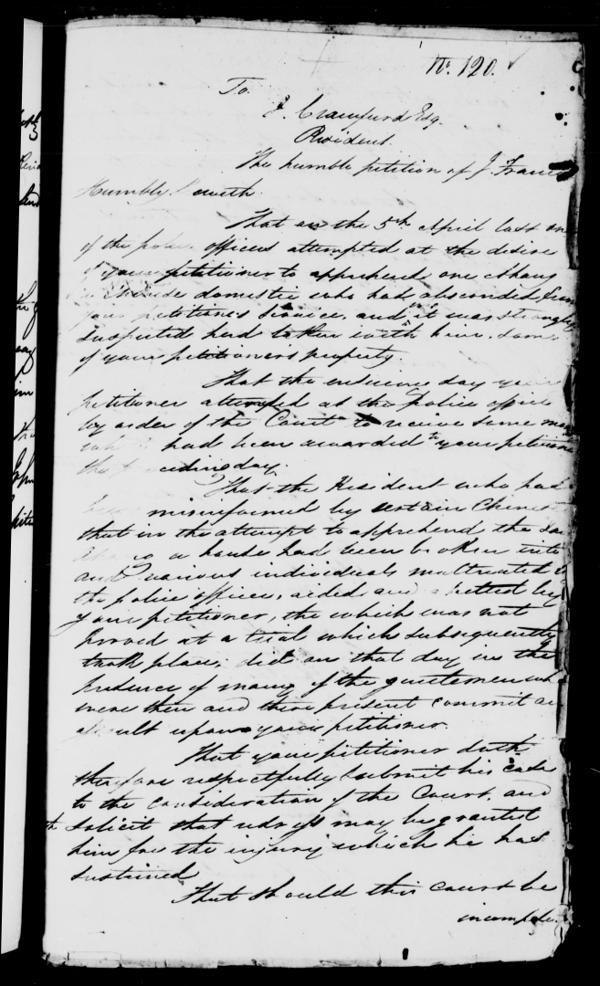 No. 120.
To
J. Crawfurd Esq.
Resident.
The humble petition of J. Francis
Humbly
That on the 5th April last one
of the police officers attempted at the desire
of your petitioner to apprehend one Ahang
a Chinese domestic who had absconded from
your petitioners service, and it was strongly
suspected had taken with him some
of your petitioners property.
That the ensuing day your
petitioner attended at the police office
by order of the Court to receive some
had been awarded to your petitioner
the day.
That the Resident who had
been misinformed by certain Chinese
that in the attempt to apprehend the said
a house had been broken into
and various individuals maltreated by
the police officers, aided and abetted by
your petitioner, the which was not
proved at a trial which subsequently
took place; did on that day in the
presence of many of the gentlemen who
were then and there present commit an
assault upon your petitioner.
That your petitioner doth
therefore respectfully submit his case
to the consideration of the Court, and
solicit that redress may be granted
him for the injury which he has
sustained
That should this court be